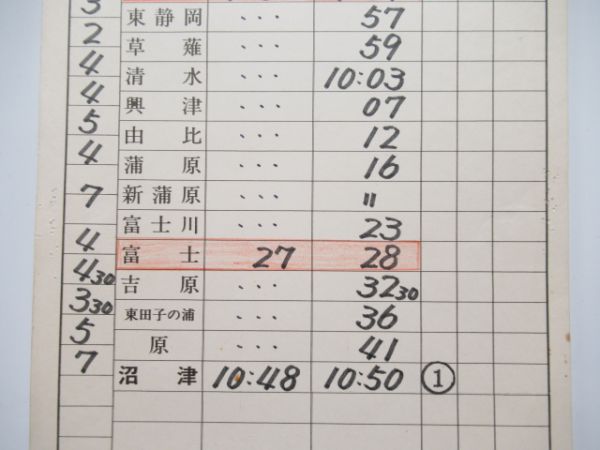 3
東静岡 ・・・ 57
2
草薙 ・・・ 59
4
清水 ・・・ 10:03
4
興津 ・・・ 07
5
由比 ・・・ 12
4
蒲原 ・・・ 16
7
新蒲原 ・・・ 〃
富士川 ・・・ 23
4
富士 27 28
4 30
吉原 ・・・ 32 30
3 30
東田子の浦 ・・・ 36
5
原 ・・・ 41
7
沼津 10:48 10:50 ①